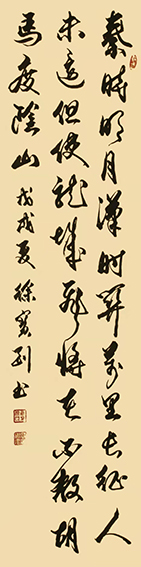 秦时明月汉时关万里长征人
未还但使龙城飞将在不教胡
马度阴山 戊戌夏 徐 刘书